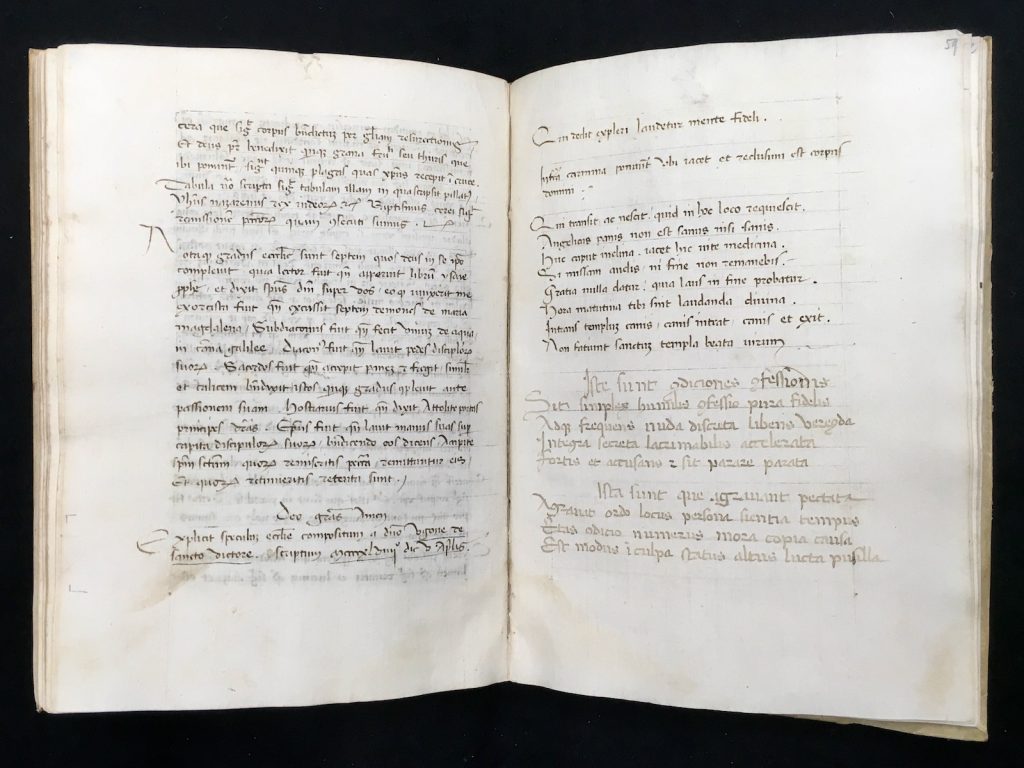 cera que sigt corpus bndictus per gliam resurectionis
Et deus pr benedixit quinque grana seu thuris que
ibi ponunt quinque plagas quas xpus recepit i cruce
Tabula vo scripta sigt tabulam illam in qua scripsit pillatus
yhus nazarenus rex iudeor Baptismus cerei sigt
remissione pctor quam secuti sumus
Notaq gradus ecclie sunt septem quos deus in se ipo
complevit quia lector fuit qn apperuit libru ysaie
pphe et dixit spus dni super vos eo q unxerit me
exorcista fuit qn excussit septem demones de maria
magdalena Subdiaconus fuit qn fecit vinuz de aqua
in cana galilee Diacon fuit qn lavit pedes discipulor
suor Sacerdos fuit qn accepit panez et fregit
et calicem bndixit istos quinque gradus iplevit ante
passionem suam Hostiarius fuit qn dixit Attolite portas
principes vras Epus fuit qn lauit manus suas sup
capita discipulor suor bndicendo eos dicens Accipite
spm sctum quor remiseritis pcta remittuntur eis
Et quor retinueritis retenta sunt
Deo gras Amen
Explicit speculuz ecclie compositum a dno Vgone de
sancto victore scriptum mccccxlviiii die v Aplis
59
Qm redit expleri laudetur mente fideli .
carmina ponunt Vbi iacet et reclusum est corpus
domini
Qm transit ac nescit quid in hoc loco requiescit .
Angelicus panis non est sanus nisi sanis .
Huc caput inclina . iacet hic vite medicina .
Si missam audis ni fine non remanebis .
Gratia nulla datur . quia laus in fine probatur .
Hora matutina tibi sint laudanda diuina .
Intrans templuz canis canis intrat canis et exit .
Non faciunt sanctuz templa beata uirum
Iste sunt 9diciones 9fessionis
Sit simplex humilis 9fessio pura fidelis
Adq frequens nuda discreta libens verecuda
Integra secreta lacrimabilis accelerata
Fortis et accusans et sit parare parata
Ista sunt que igravant peccata
Agravat ordo locus persona sientia tempus
Etas 9dicio numerus mora copia causa
Est modus i culpa status altus lucta pusilla